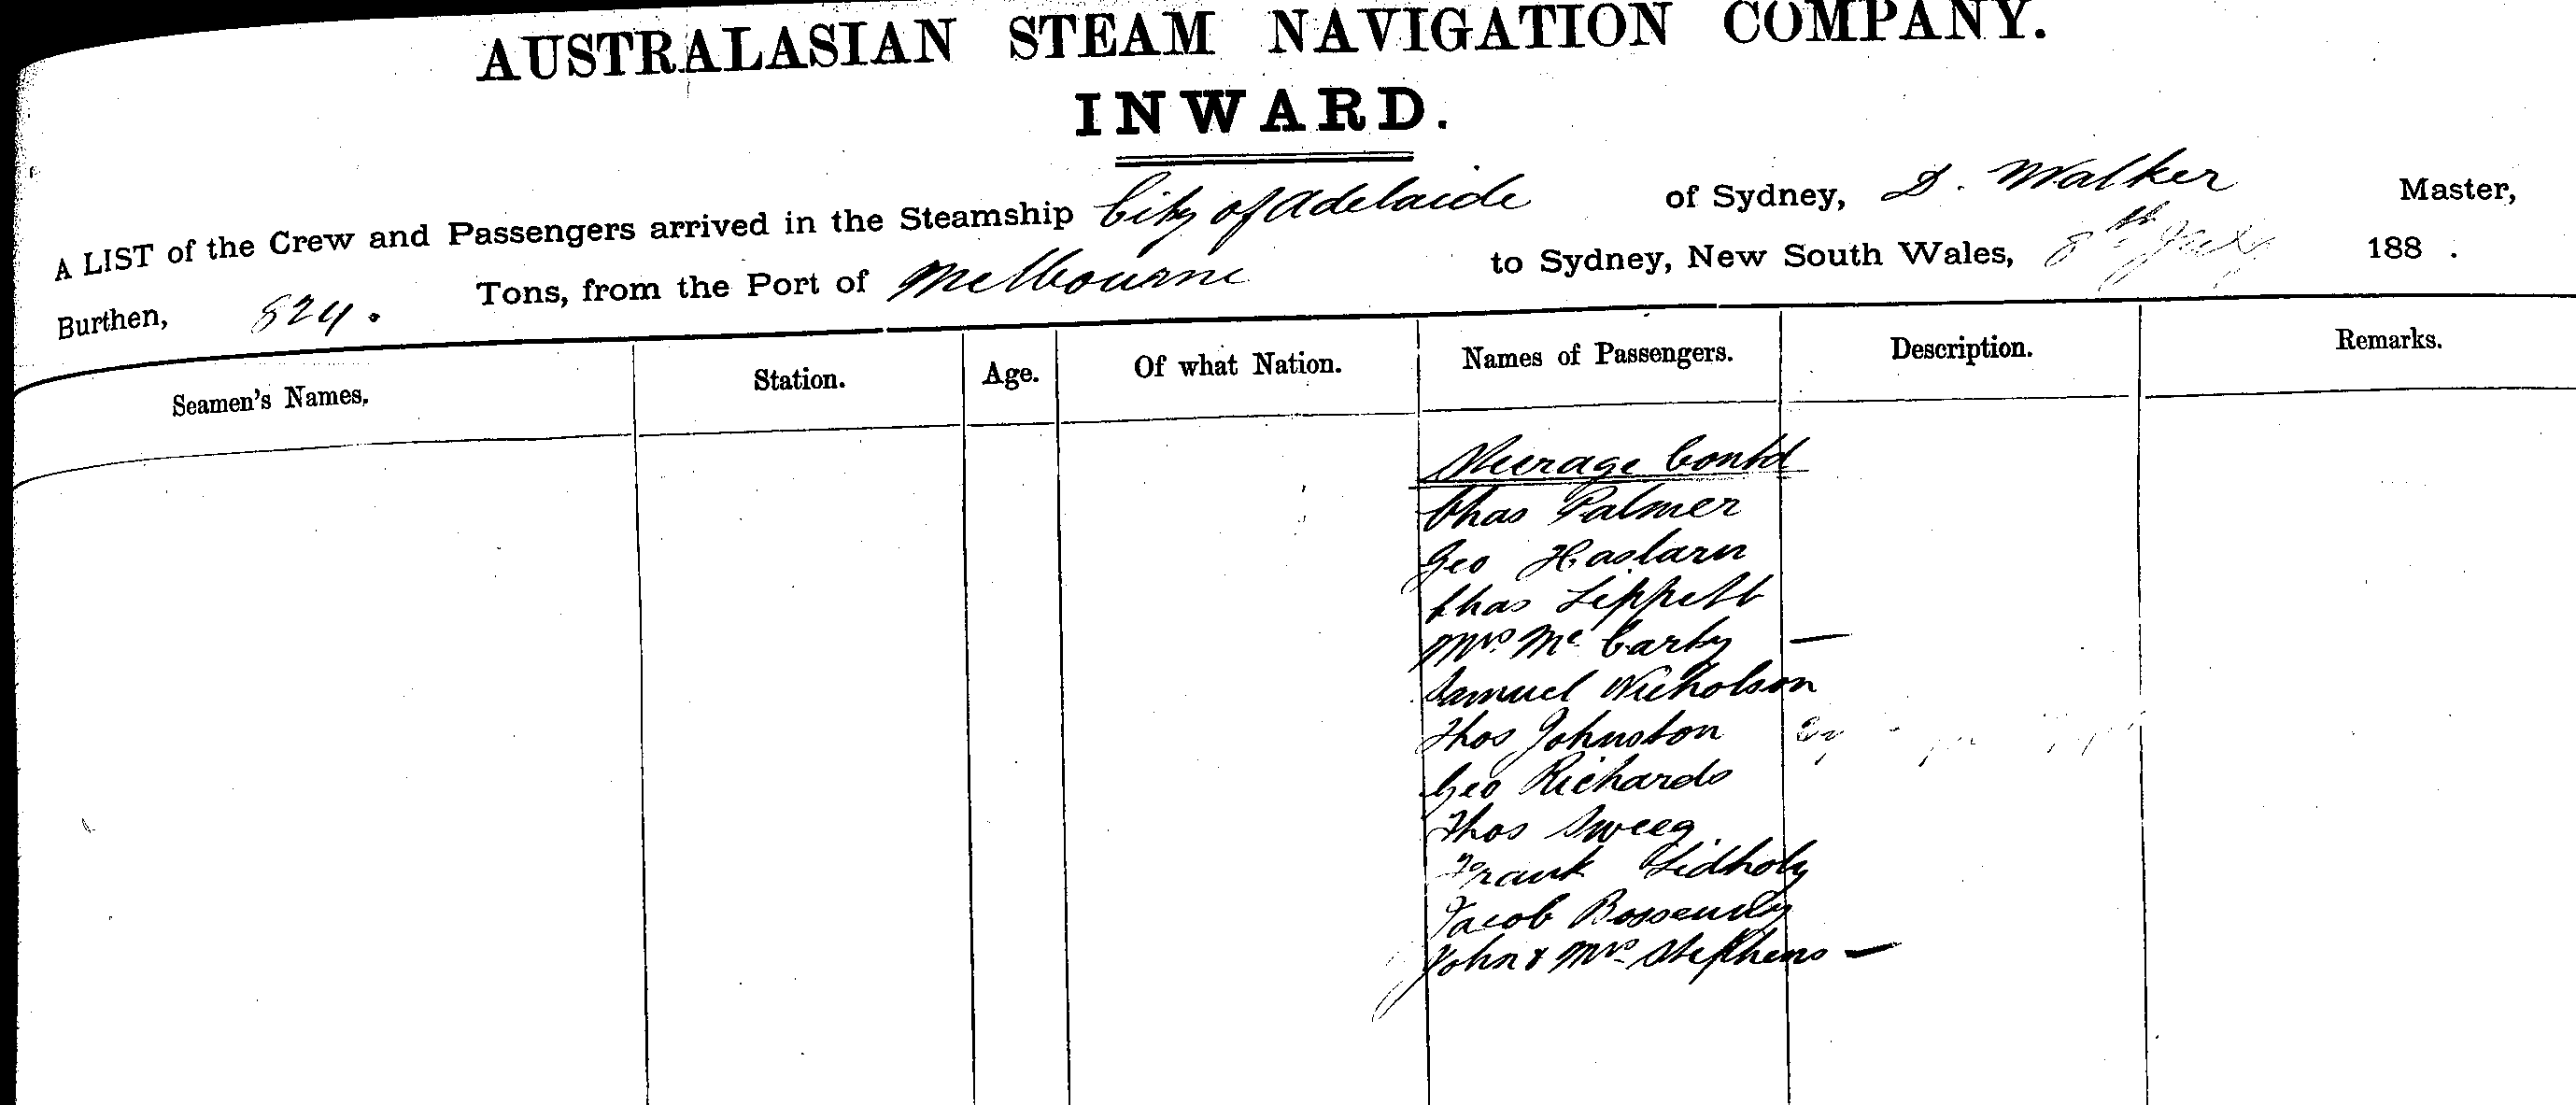 AUSTRALASIAN STEAM NAVIGATION COMPANY.
INWARD.
A LIST of the Crew and Passengers arrived in the Steamship City of Adelaide of Sydney, D. Walker Master,
Burthen, 824. Tons, from the Port of Melbourne to Sydney, New South Wales, 8th July 188 .
Seamen's Names. Station. Age. Of what Nation. Names of Passengers. Description. Remarks.
Steerage Contd
Chas Palmer
Geo Haslam
Chas Lippett
Mrs Mc Carty —
Samuel Nicholson
Thos Johnston
Geo Richards
Thos Sweeg
Frank
Jacob
John & Mrs Stephens —